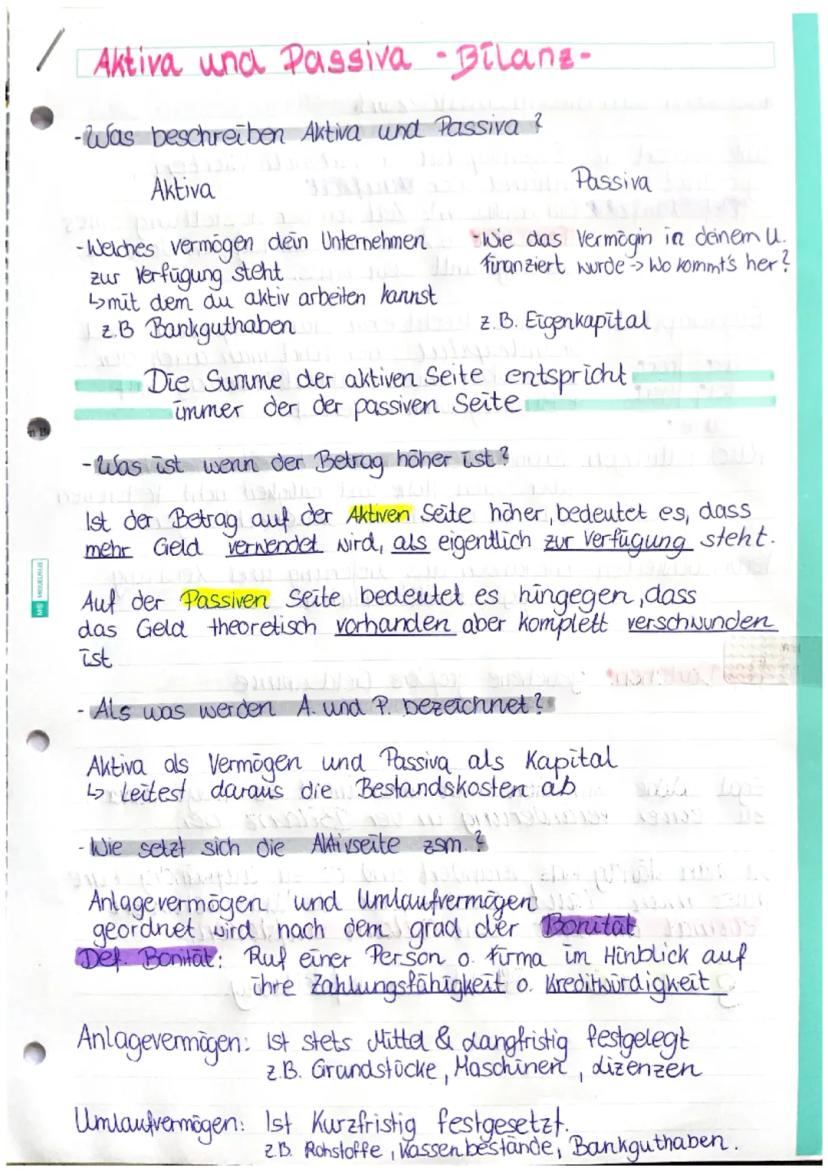 Aktiva und Passiva - Bilanz-
- Was beschreiben Aktiva und Passiva?
Aktiva
Passiva
- Welches Vermögen dein Unternehmen
zur Verfügung steht
↳ mit dem du aktiv arbeiten kannst
z.B Bankguthaben
- Wie das Vermögin in deinem U.
finanziert wurde -> Wo kommt's her?
z.B. Eigenkapital
Die Summe der aktiven Seite entspricht
immer der der passiven Seite
- Was ist wenn der Betrag höher ist?
Ist der Betrag auf der Aktiven Seite höher, bedeutet es, dass
mehr Geld verwendet wird, als eigentlich zur Verfügung steht.
Auf der Passiven Seite bedeutet es hingegen, dass
das Geld theoretisch vorhanden aber komplett verschwunden
ist
- Als was werden A. und P. bezeichnet?
Aktiva als Vermögen und Passiva als Kapital
↳ Leitest daraus die Bestandskosten ab
- Wie setzt sich die Aktivseite zsm.?
Anlagevermögen und Umlaufvermögen
geordnet wird nach dem grad der Bonität
Def. Bonität: Ruf einer Person o. Firma im Hinblick auf
ihre Zahlungsfähigkeit o. Kreditwürdigkeit
Anlagevermögen: Ist stets Mittel & Langfristig festgelegt
z.B. Grundstücke, Maschinen, Lizenzen
Umlaufvermögen: Ist Kurzfristig festgesetzt.
z.B. Rohstoffe, Kassenbestände, Bankguthaben.